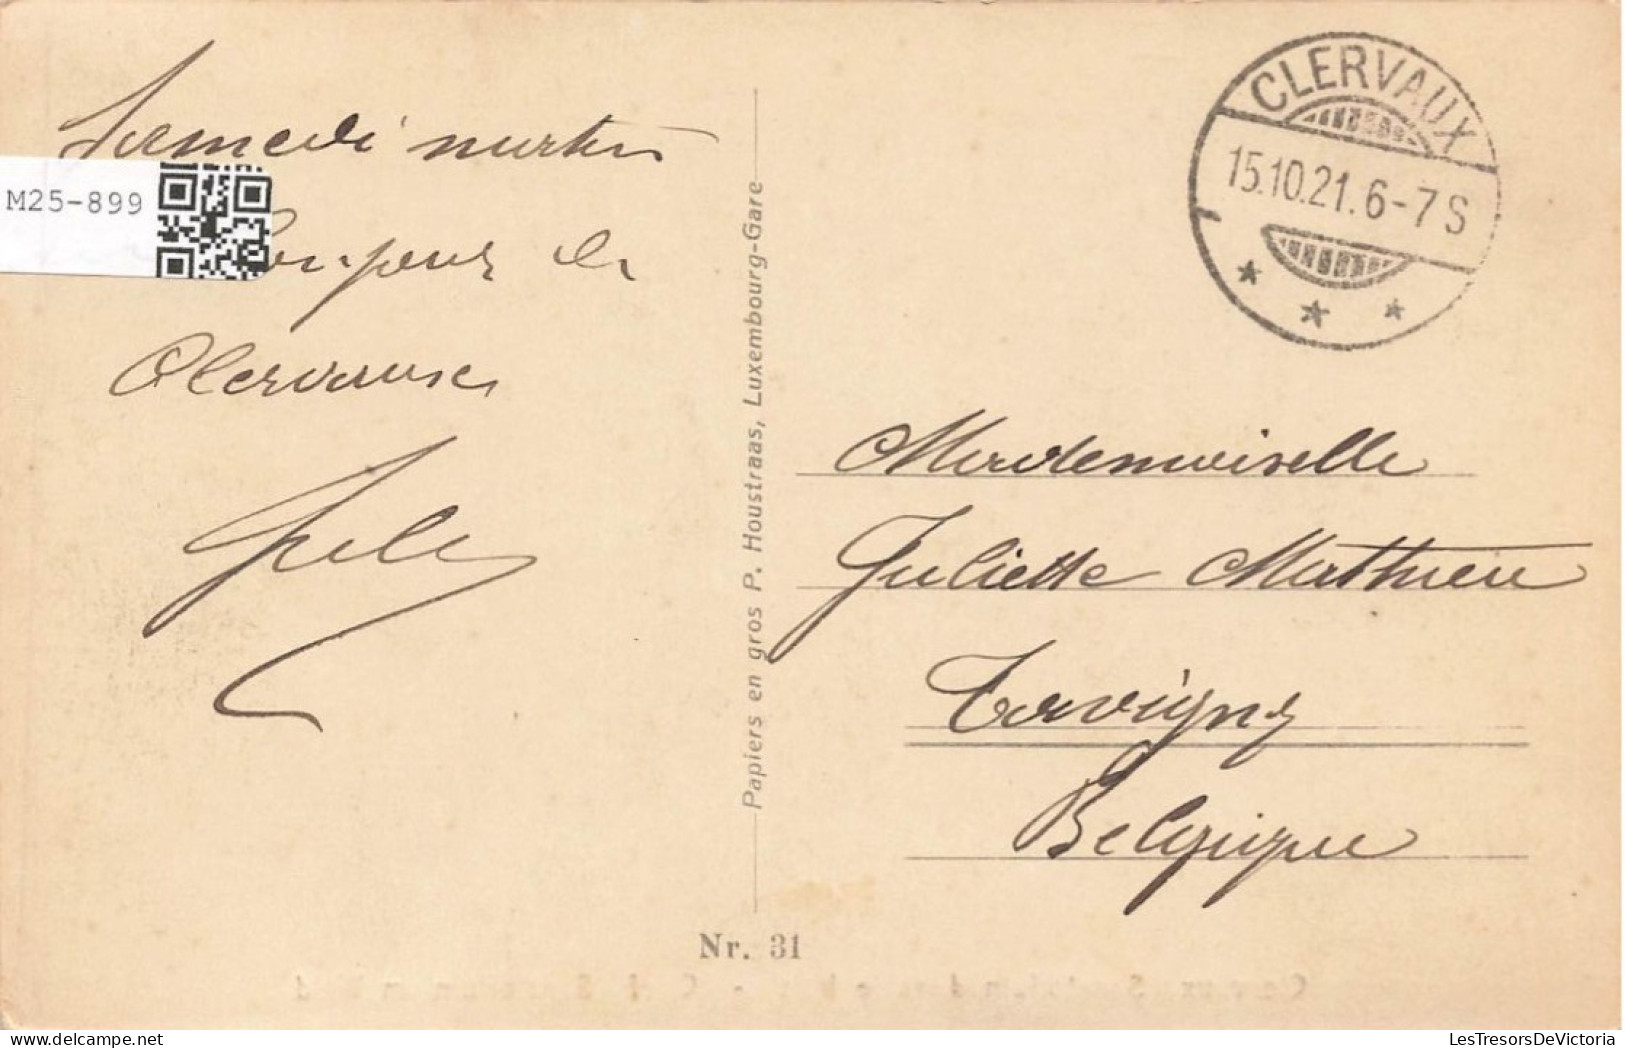 Samedi matin
Bonjour de
Clervaux
M25-899
Papiers en gros P. Houstraas, Luxembourg-Gare
CLERVAUX
15.10.21. 6-7 S
Mademoiselle
Juliette Mathieu
Tavigny
Belgique
Nr. 31
LesTresorsDeVictoria